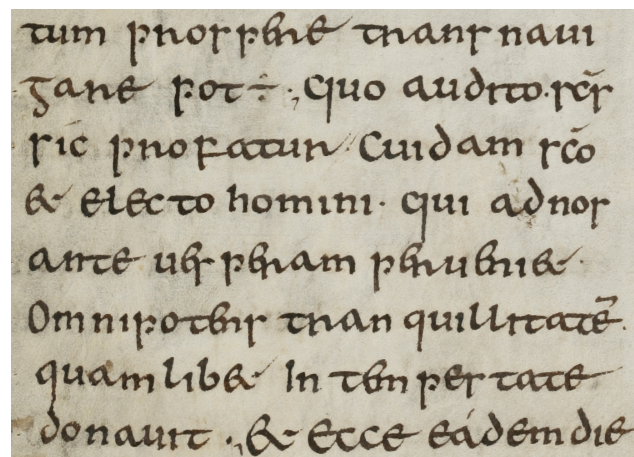 tum prospere transnaui
gare pot÷·, Quo audito· sc̄s
sic profatur· Cuidam sc̄o
& electo homini· qui adnos
ante uesperam perueni&·
Omnipotens tranquillitatē·
quamlib& In tenpestate
donauit ·, & ecce eádem die